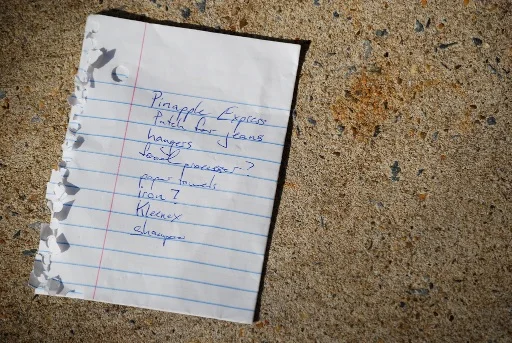 Pinapple Express
Patch for jeans
hangers
processor?
paper towels
Iron?
Kleenex
shampoo